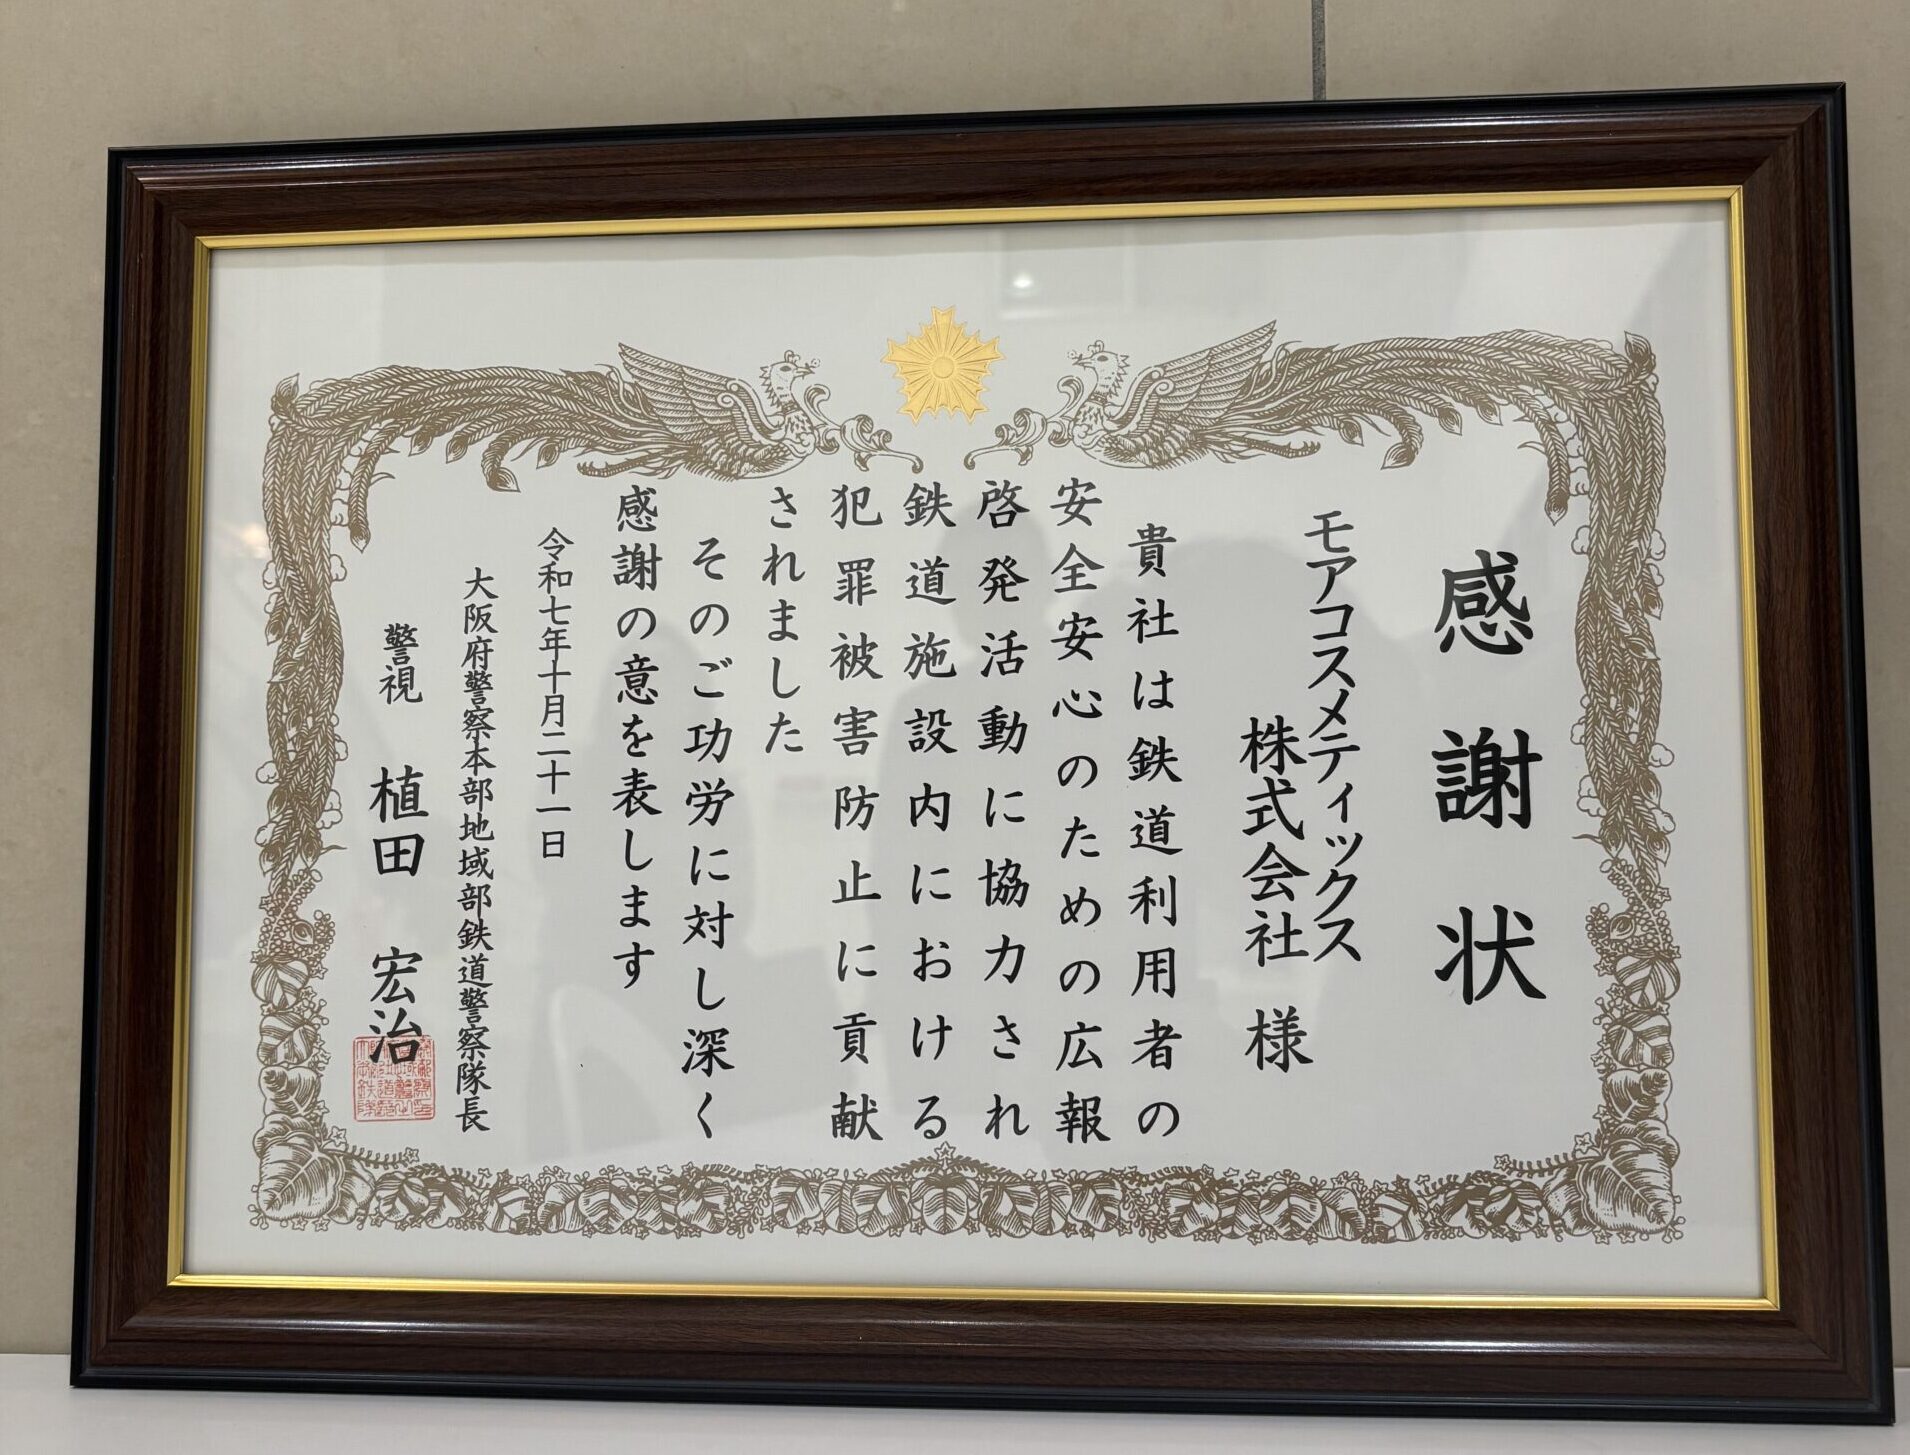 感謝状
モアコスメティックス
株式会社 様
貴社は鉄道利用者の
安全安心のための広報
啓発活動に協力され
鉄道施設内における
犯罪被害防止に貢献
されました
そのご功労に対し深く
感謝の意を表します
令和七年十月二十一日
大阪府警察本部地域部鉄道警察隊長
警視 植田 宏治